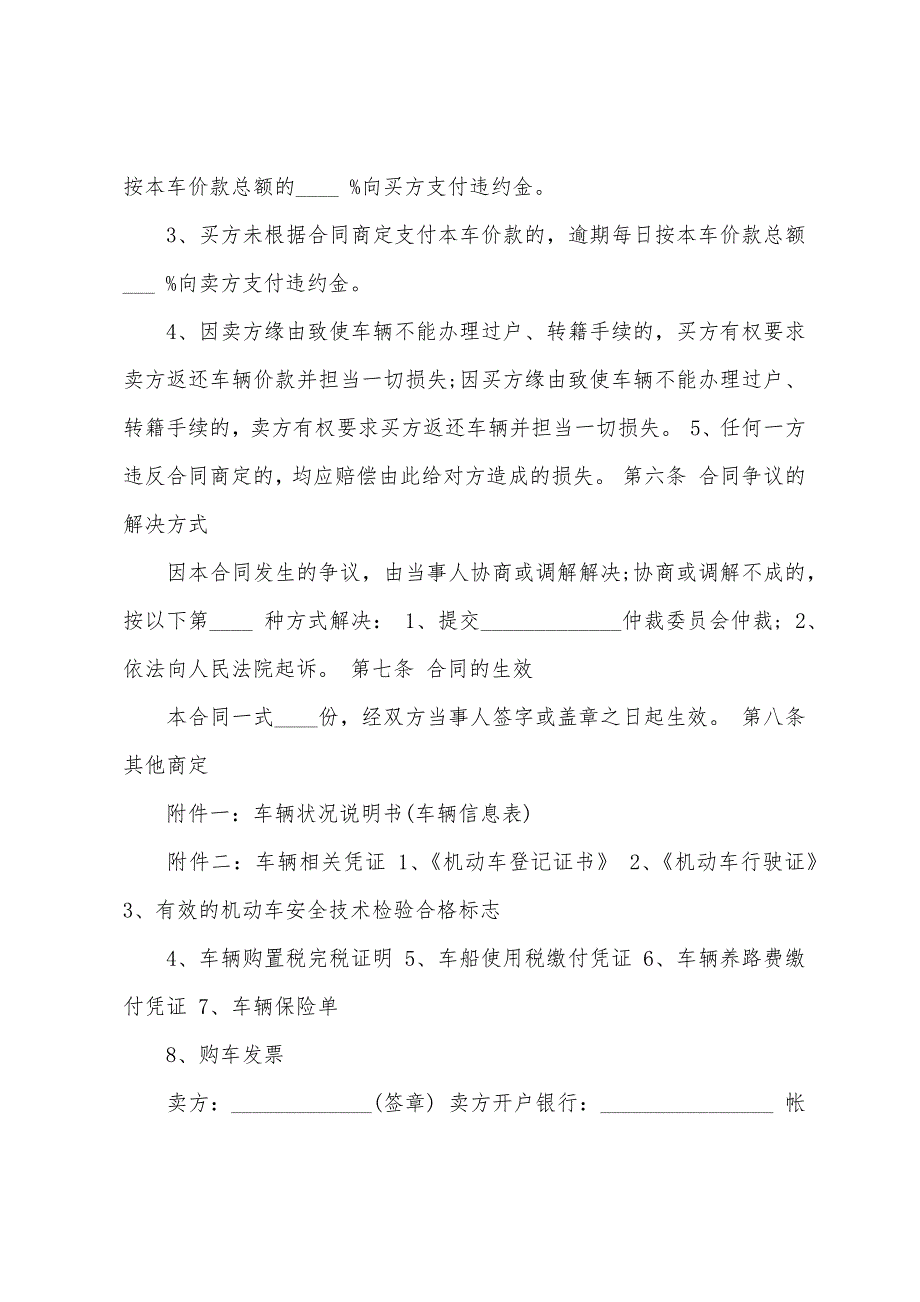 按本车价款总额的____ %向买方支付违约金。
3、买方未根据合同商定支付本车价款的，逾期每日按本车价款总额
___ %向卖方支付违约金。
4、因卖方缘由致使车辆不能办理过户、转籍手续的，买方有权要求
卖方返还车辆价款并担当一切损失;因买方缘由致使车辆不能办理过户、
转籍手续的，卖方有权要求买方返还车辆并担当一切损失。 5、任何一方
违反合同商定的，均应赔偿由此给对方造成的损失。 第六条 合同争议的
解决方式
因本合同发生的争议，由当事人协商或调解解决;协商或调解不成的，
按以下第____ 种方式解决： 1、提交_____________仲裁委员会仲裁; 2、
依法向人民法院起诉。 第七条 合同的生效
本合同一式____份，经双方当事人签字或盖章之日起生效。 第八条
其他商定
附件一：车辆状况说明书(车辆信息表)
附件二：车辆相关凭证 1、《机动车登记证书》 2、《机动车行驶证》
3、有效的机动车安全技术检验合格标志
4、车辆购置税完税证明 5、车船使用税缴付凭证 6、车辆养路费缴
付凭证 7、车辆保险单
8、购车发票
卖方：_____________(签章) 卖方开户银行：________________ 帐